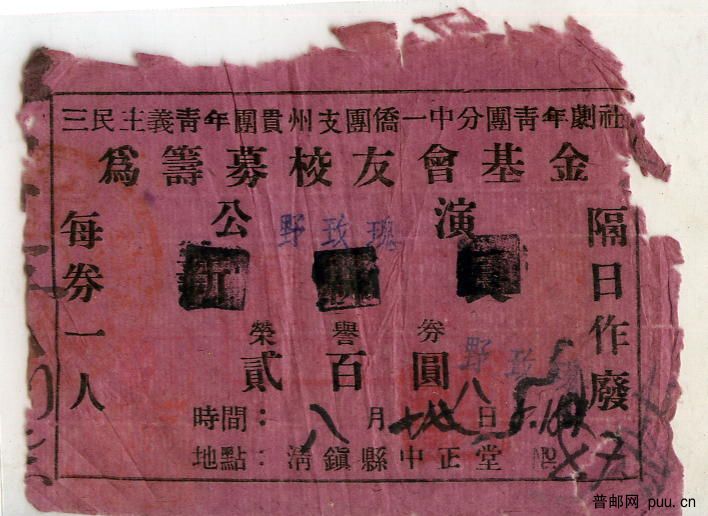 三民主義靑年團貴州支團僑一中分團靑年劇社
爲籌募校友會基金
公演
野玫瑰
隔日作廢
每券一人
榮譽券
貳百圓
野玫瑰
時間：八月 八日
地點：淸鎭縣中正堂
普邮网 puu.cn